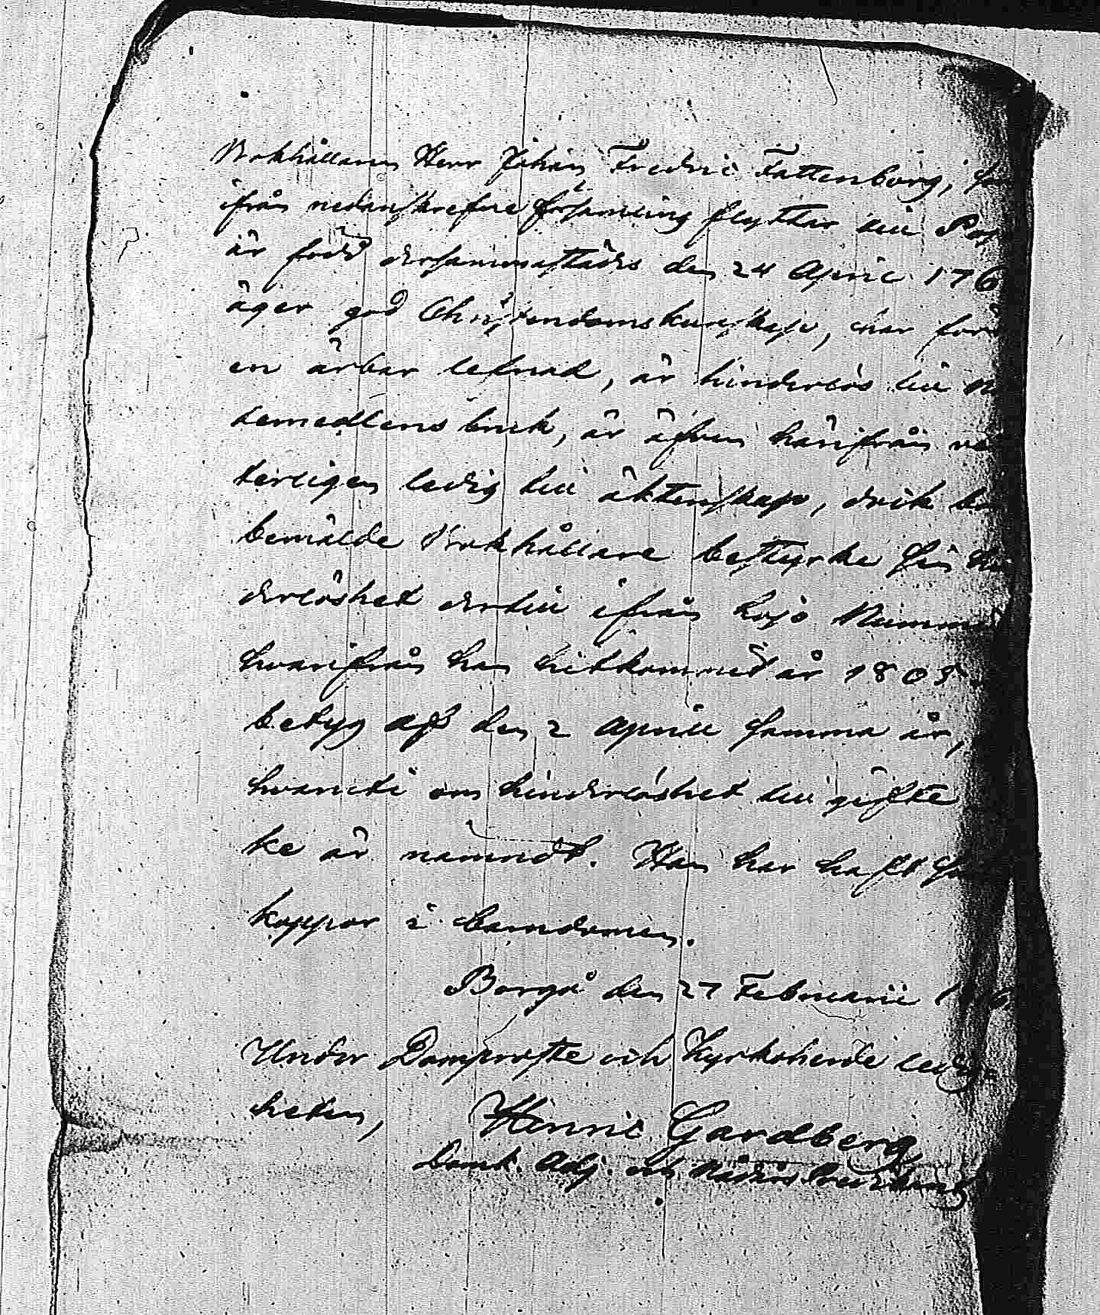 Bokhållaren Herr Johan Fredric Fattenborg, 
ifrån nedanskrefne församling flyttar till
är född dersammastädes den 24 April 176
äger god Christendomskunskap, har
en ärbar lefnad, är hinderlös till
temedlens bruk, är äfven härifrån
terligen ledig till äktenskap,
bemälde Bokhållare bestyrke sin
derlöshet dertill ifrån Lojo
hvarifrån han hitkommit år 180
betyg af den 2 Aprill samma år,
hvaruti om hinderlöshet till gifte
ke är nämndt. Han har haft
koppor i barndomen.
Borgå den 27 Februarii
Under Domproste och Kyrkoherde
heten, Henric Gardberg
Domk. Adj. och